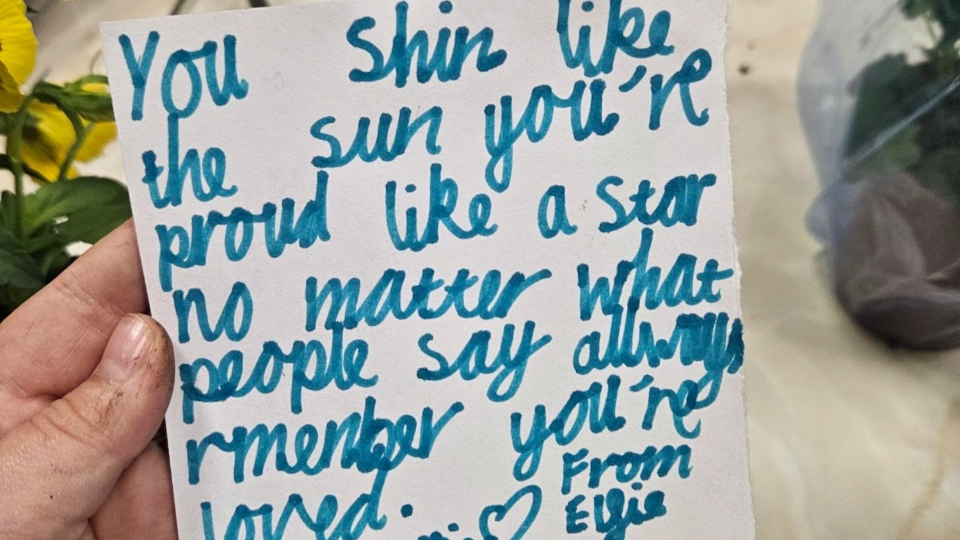 You shin like
the sun you're
proud like a star
no matter what
people say allways
rmember you're
loved. ♡ From
Elfie